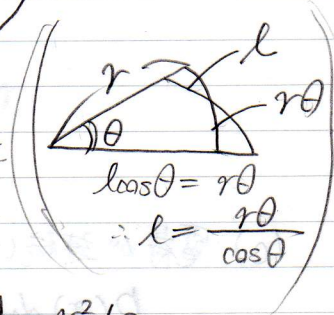 r
l
θ
rθ
lcosθ = rθ
∴ l = rθ/cosθ